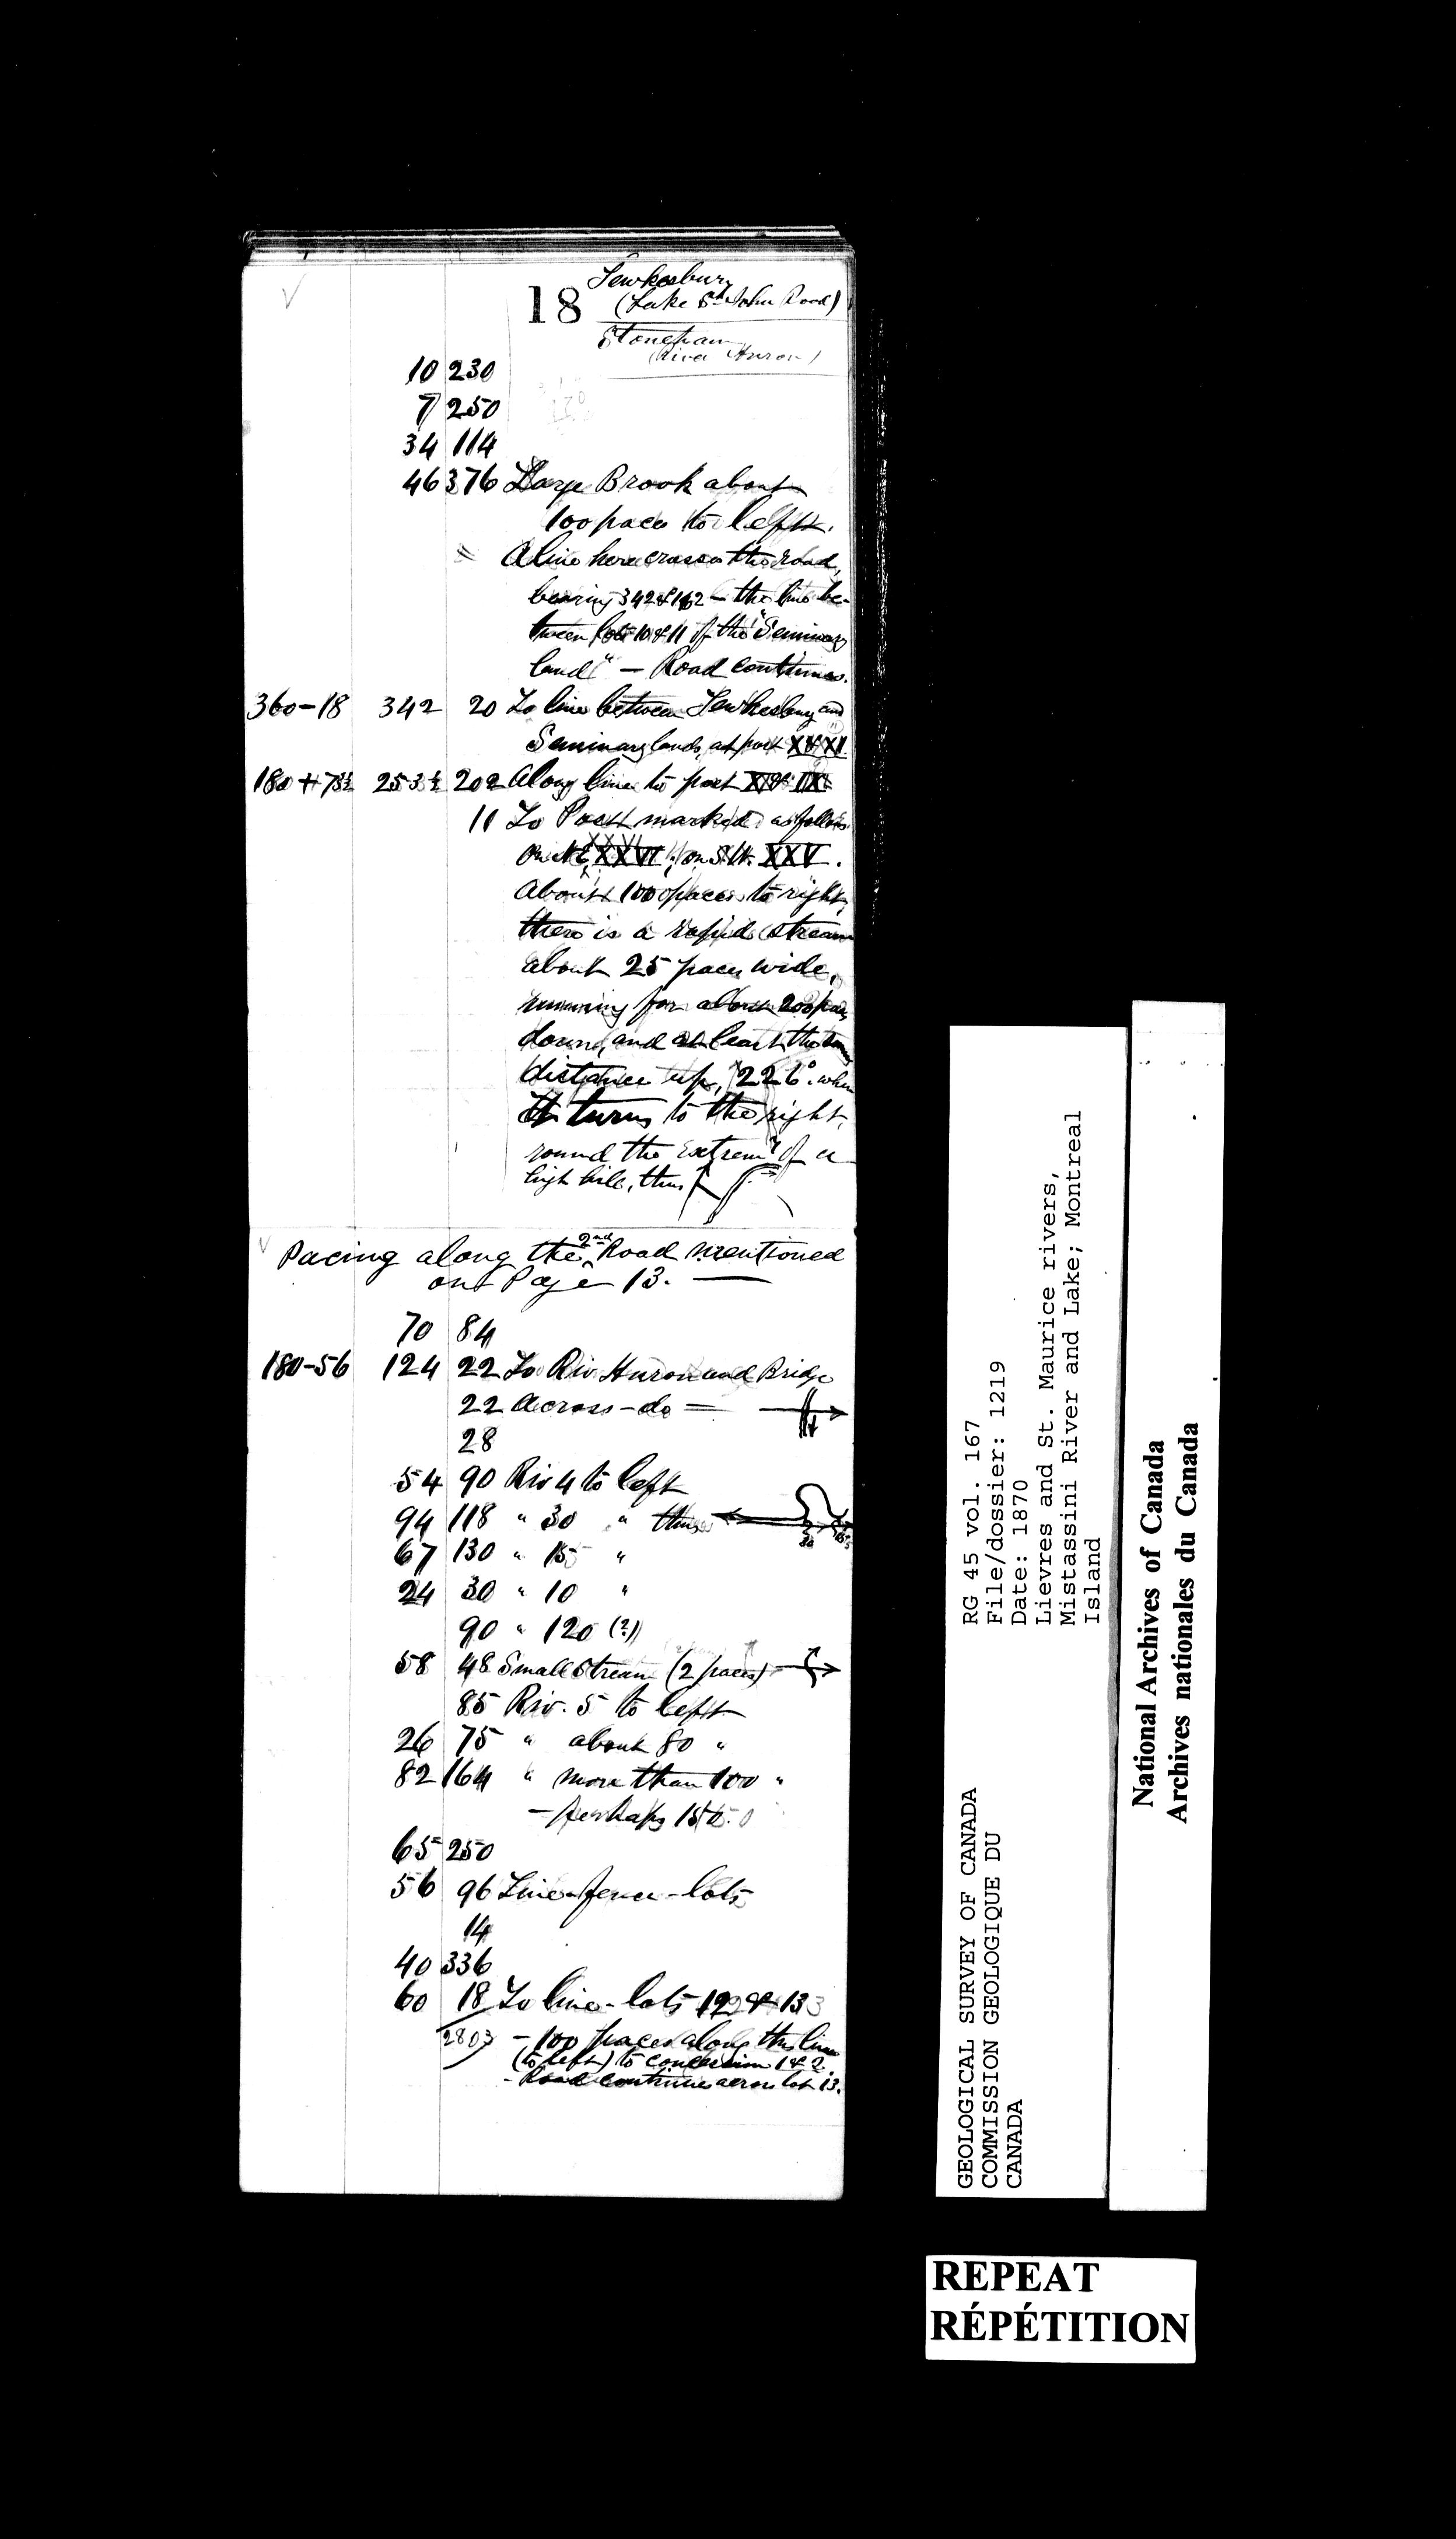 Tewkesbury
18 (Lake St John Road)
Stoneham
(River Huron)
10 230
7 250
34 114
46 376 Large Brook about
100 paces to left.
A line here crosses the road,
bearing 342 & 162 – the line be-
tween lots 10 & 11 of the "Seminary
land" – Road continues.
360–18 342 20 To line between Tewkesbury and
Seminary lands, at post
180 + 73½ 253½ 202 Along line to post
11 To Post marked as follows
on N.E. XXVI; on S.W. XXV.
About 100 paces to right,
there is a rapid stream
about 25 paces wide,
running for about 200 paces
down, and at least the same
distance up, 226°. when
It turns to the right,
round the extremy of a
high hill, thus
Pacing along the 2nd Road mentioned
on Page 13. —
70 84
180–56 124 22 To Riv. Huron and Bridge
22 Across – do =
28
54 90 Riv 4 to left
94 118 " 30 " thus
67 130 " 15 "
24 30 " 10 "
90 " 120 (?)
58 48 Small Stream (2 paces)
85 Riv. 5 to left
26 75 " about 80 "
82 164 " more than 100 "
– perhaps 150.
65 250
56 96 Line-fence – lots
14
40 336
60 18 To line – lots 12 & 13
2803 – 100 paces along this line
(to left) to concession 1 & 2.
– Road continues across lot 13.
RG 45 vol. 167
File/dossier: 1219
Date: 1870
Lievres and St. Maurice rivers,
Mistassini River and Lake; Montreal
Island
GEOLOGICAL SURVEY OF CANADA
COMMISSION GEOLOGIQUE DU
CANADA
National Archives of Canada
Archives nationales du Canada
REPEAT
RÉPÉTITION